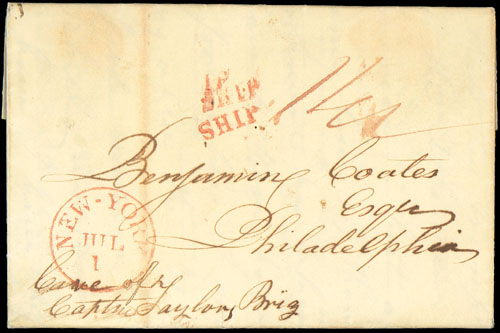 SHIP
SHIP
Benjamin Coates
Esqr
Philadelphia
NEW-YORK
JUL
1
Care of
Captn Taylor, Brig